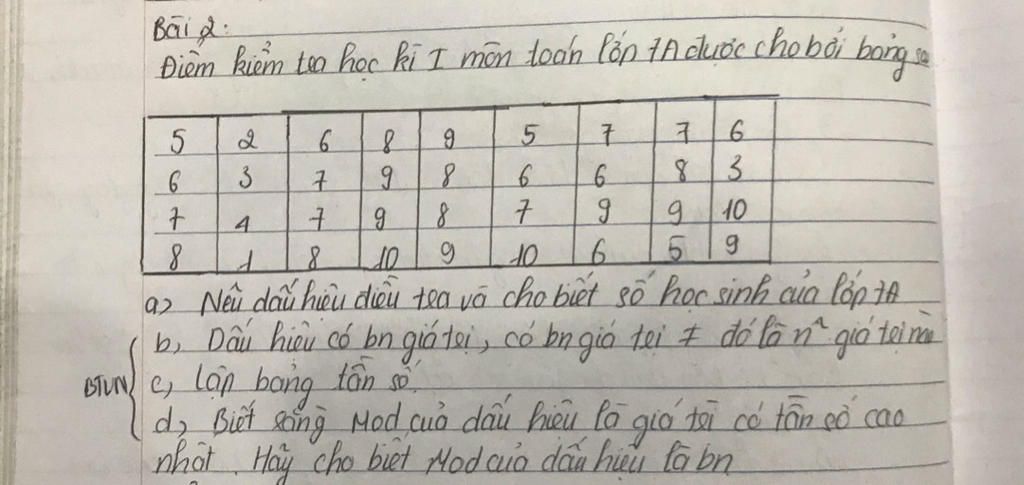 Bài 2:
Điểm kiểm tra học kì I môn toán lớp 7A được cho bởi bảng sa
5 2 6 8 9 5 7 7 6
6 3 7 9 8 6 6 8 3
7 4 7 9 8 7 9 9 10
8 1 8 10 9 10 6 5 9
a, Nêu dấu hiệu điều tra và cho biết số học sinh của lớp 7A
b, Dấu hiệu có bn giá trị, có bn giá trị ≠ đó là n² giá trị nào
BTVN
c, lập bảng tần số.
d, Biết rằng Mod của dấu hiệu là giá trị có tần số cao
nhất. Hãy cho biết Mod của dấu hiệu là bn